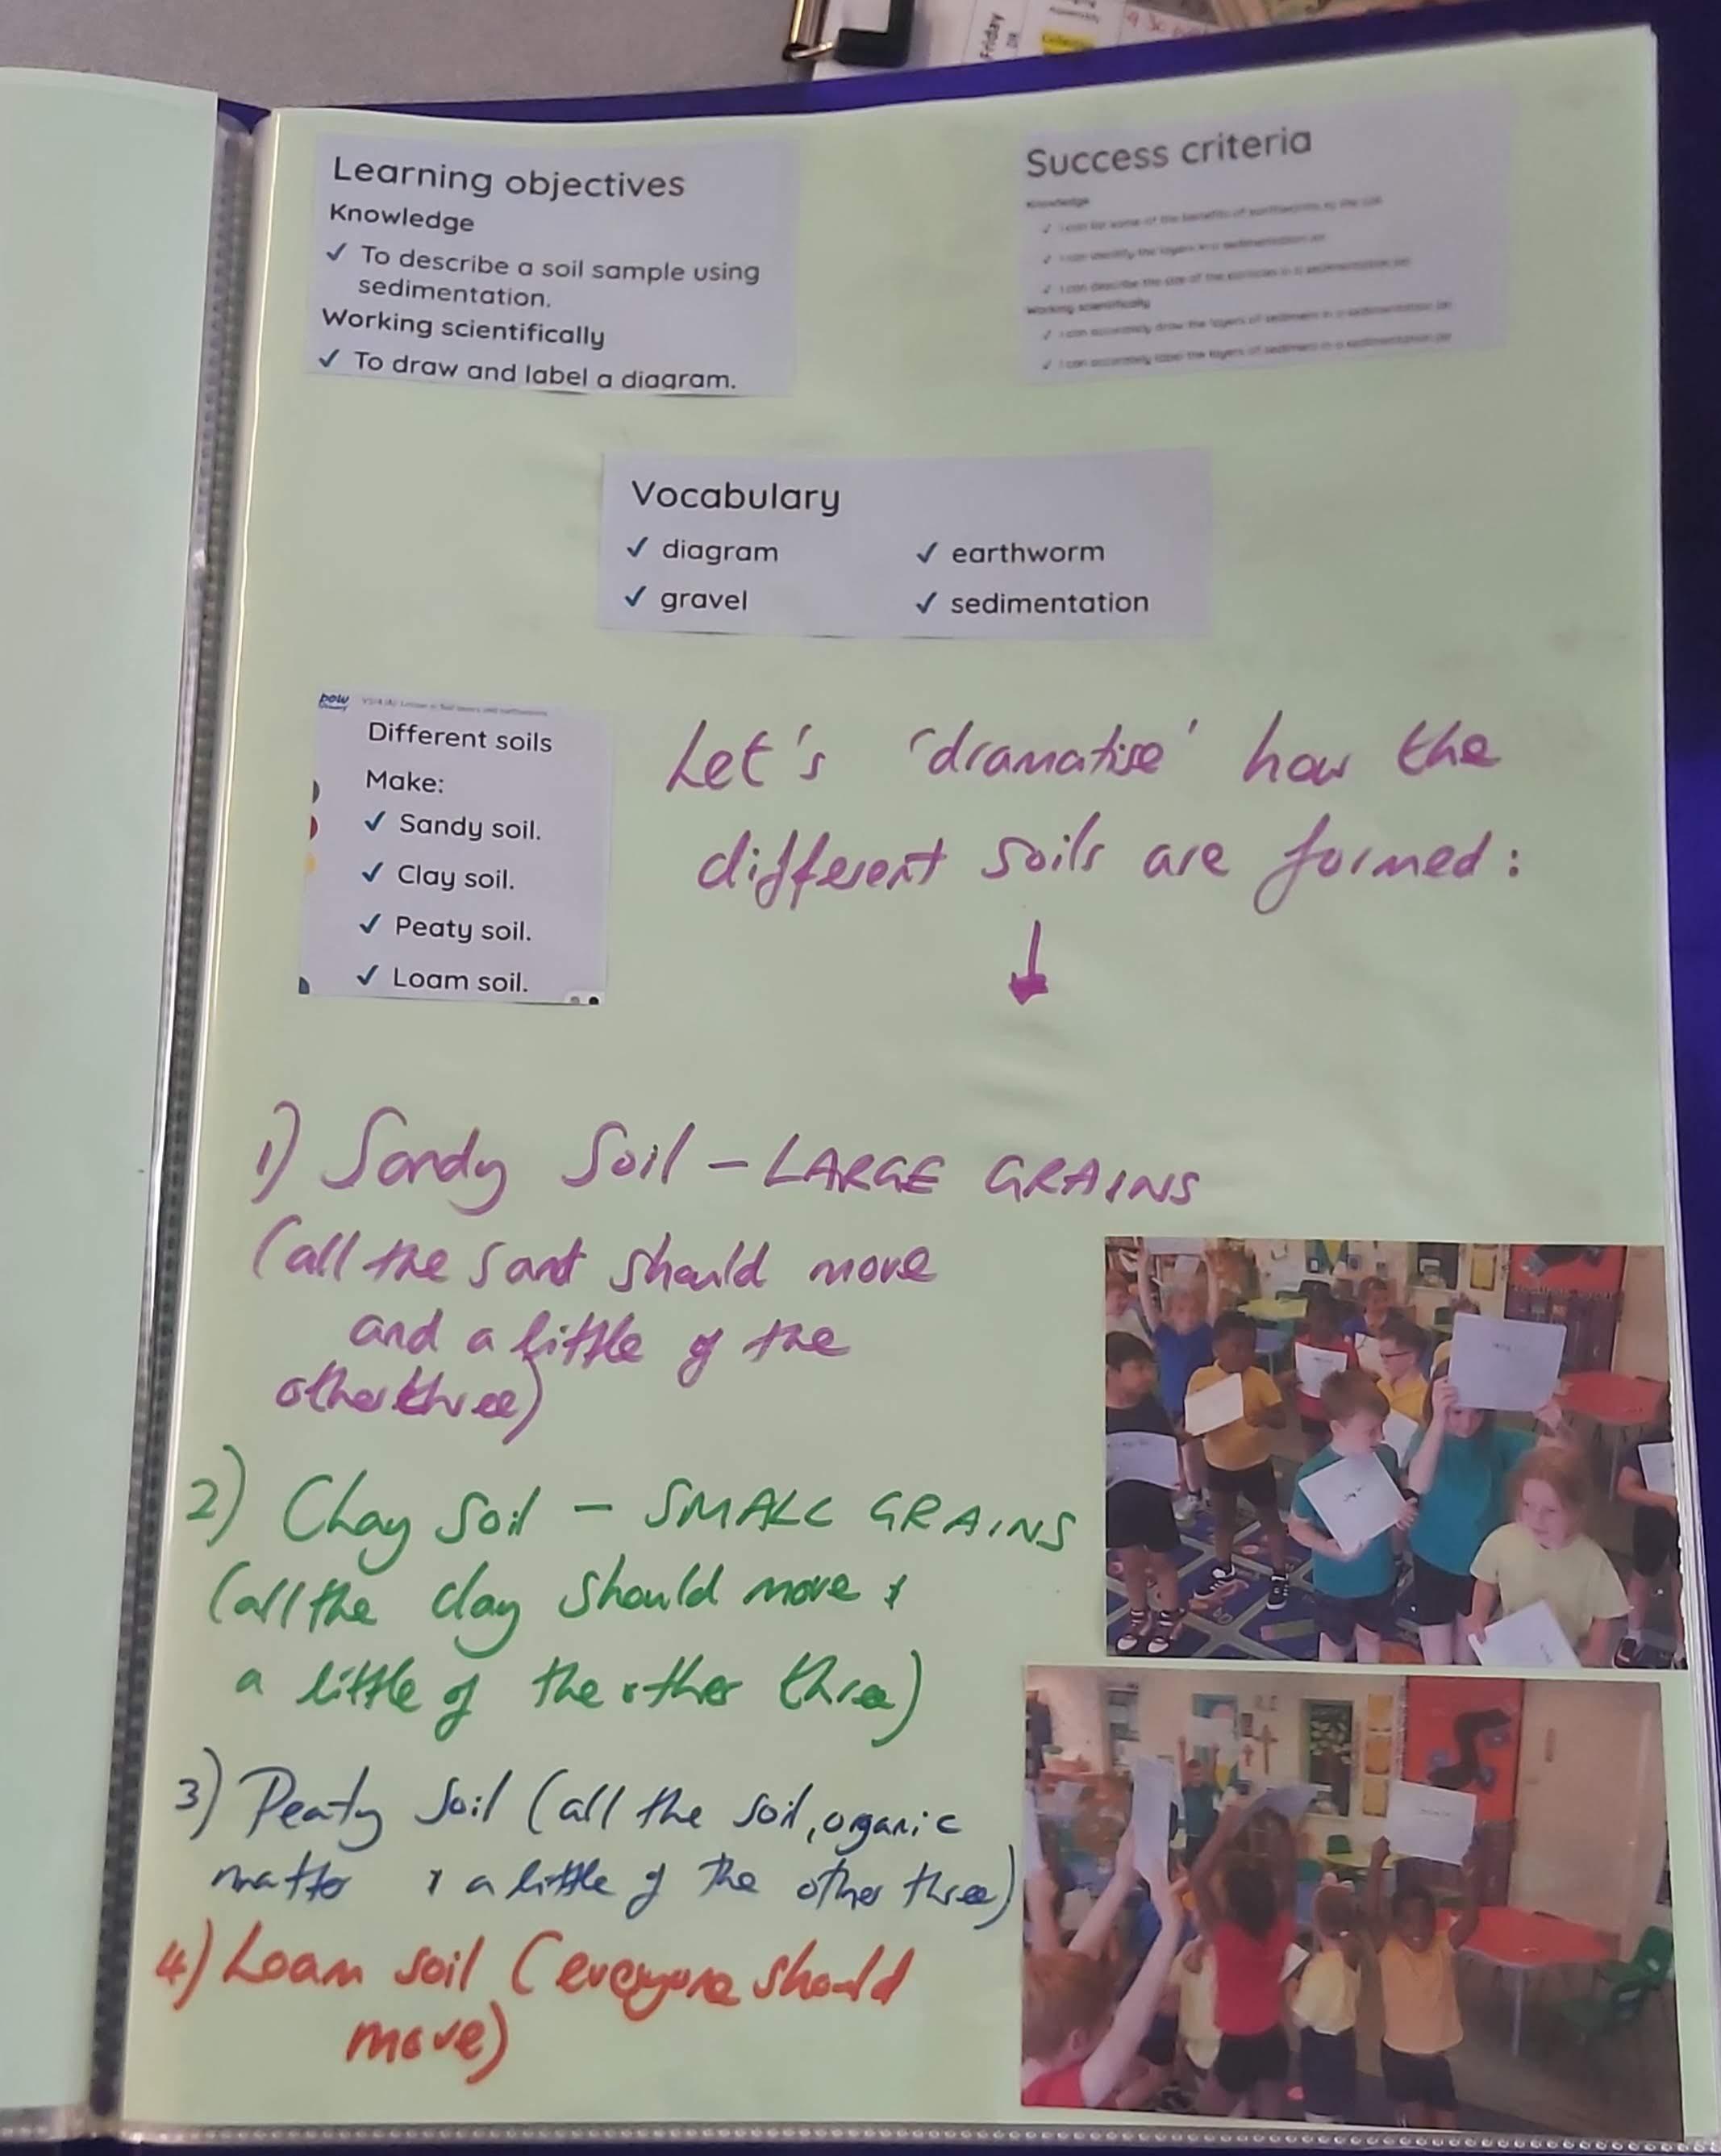 Friday
Learning objectives
Knowledge
✓ To describe a soil sample using
sedimentation.
Working scientifically
✓ To draw and label a diagram.
Success criteria
Knowledge
✓ I can list some of the benefits of earthworms to the soil.
✓ I can identify the layers in a sedimentation jar.
✓ I can describe the size of the particles in a sedimentation jar.
Working scientifically
✓ I can accurately draw the layers of sediment in a sedimentation jar.
✓ I can accurately label the layers of sediment in a sedimentation jar.
Vocabulary
✓ diagram
✓ earthworm
✓ gravel
✓ sedimentation
Different soils
Make:
✓ Sandy soil.
✓ Clay soil.
✓ Peaty soil.
✓ Loam soil.
Let's 'dramatise' how the
different soils are formed:
1) Sandy Soil – LARGE GRAINS
(all the sand should move
and a little of the
other three)
2) Clay Soil – SMALL GRAINS
(all the clay should move &
a little of the other three)
3) Peaty Soil (all the soil, organic
matter & a little of the other three)
4) Loam soil (everyone should
move)